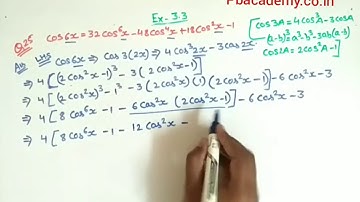 Pbacademy.co.in
Ex-3.3
Q.25 cos6x = 32cos⁶x - 48cos⁴x + 18cos²x - 1
[cos3A = 4cos³A - 3cosA
(a-b)³ = a³-b³-3ab(a-b)
cos2A = 2cos²A - 1]
LHS cos6x ⇒ cos3(2x) ⇒ 4cos³2x - 3cos2x.
⇒ 4[(2cos²x-1)³ - 3(2cos²x-1)]
⇒ 4[(2cos²x)³ - 1³ - 3(2cos²x)(1)(2cos²x-1)] - 6cos²x - 3
⇒ 4[8cos⁶x - 1 - 6cos²x (2cos²x-1)] - 6cos²x - 3
⇒ 4[8cos⁶x - 1 - 12cos²x -